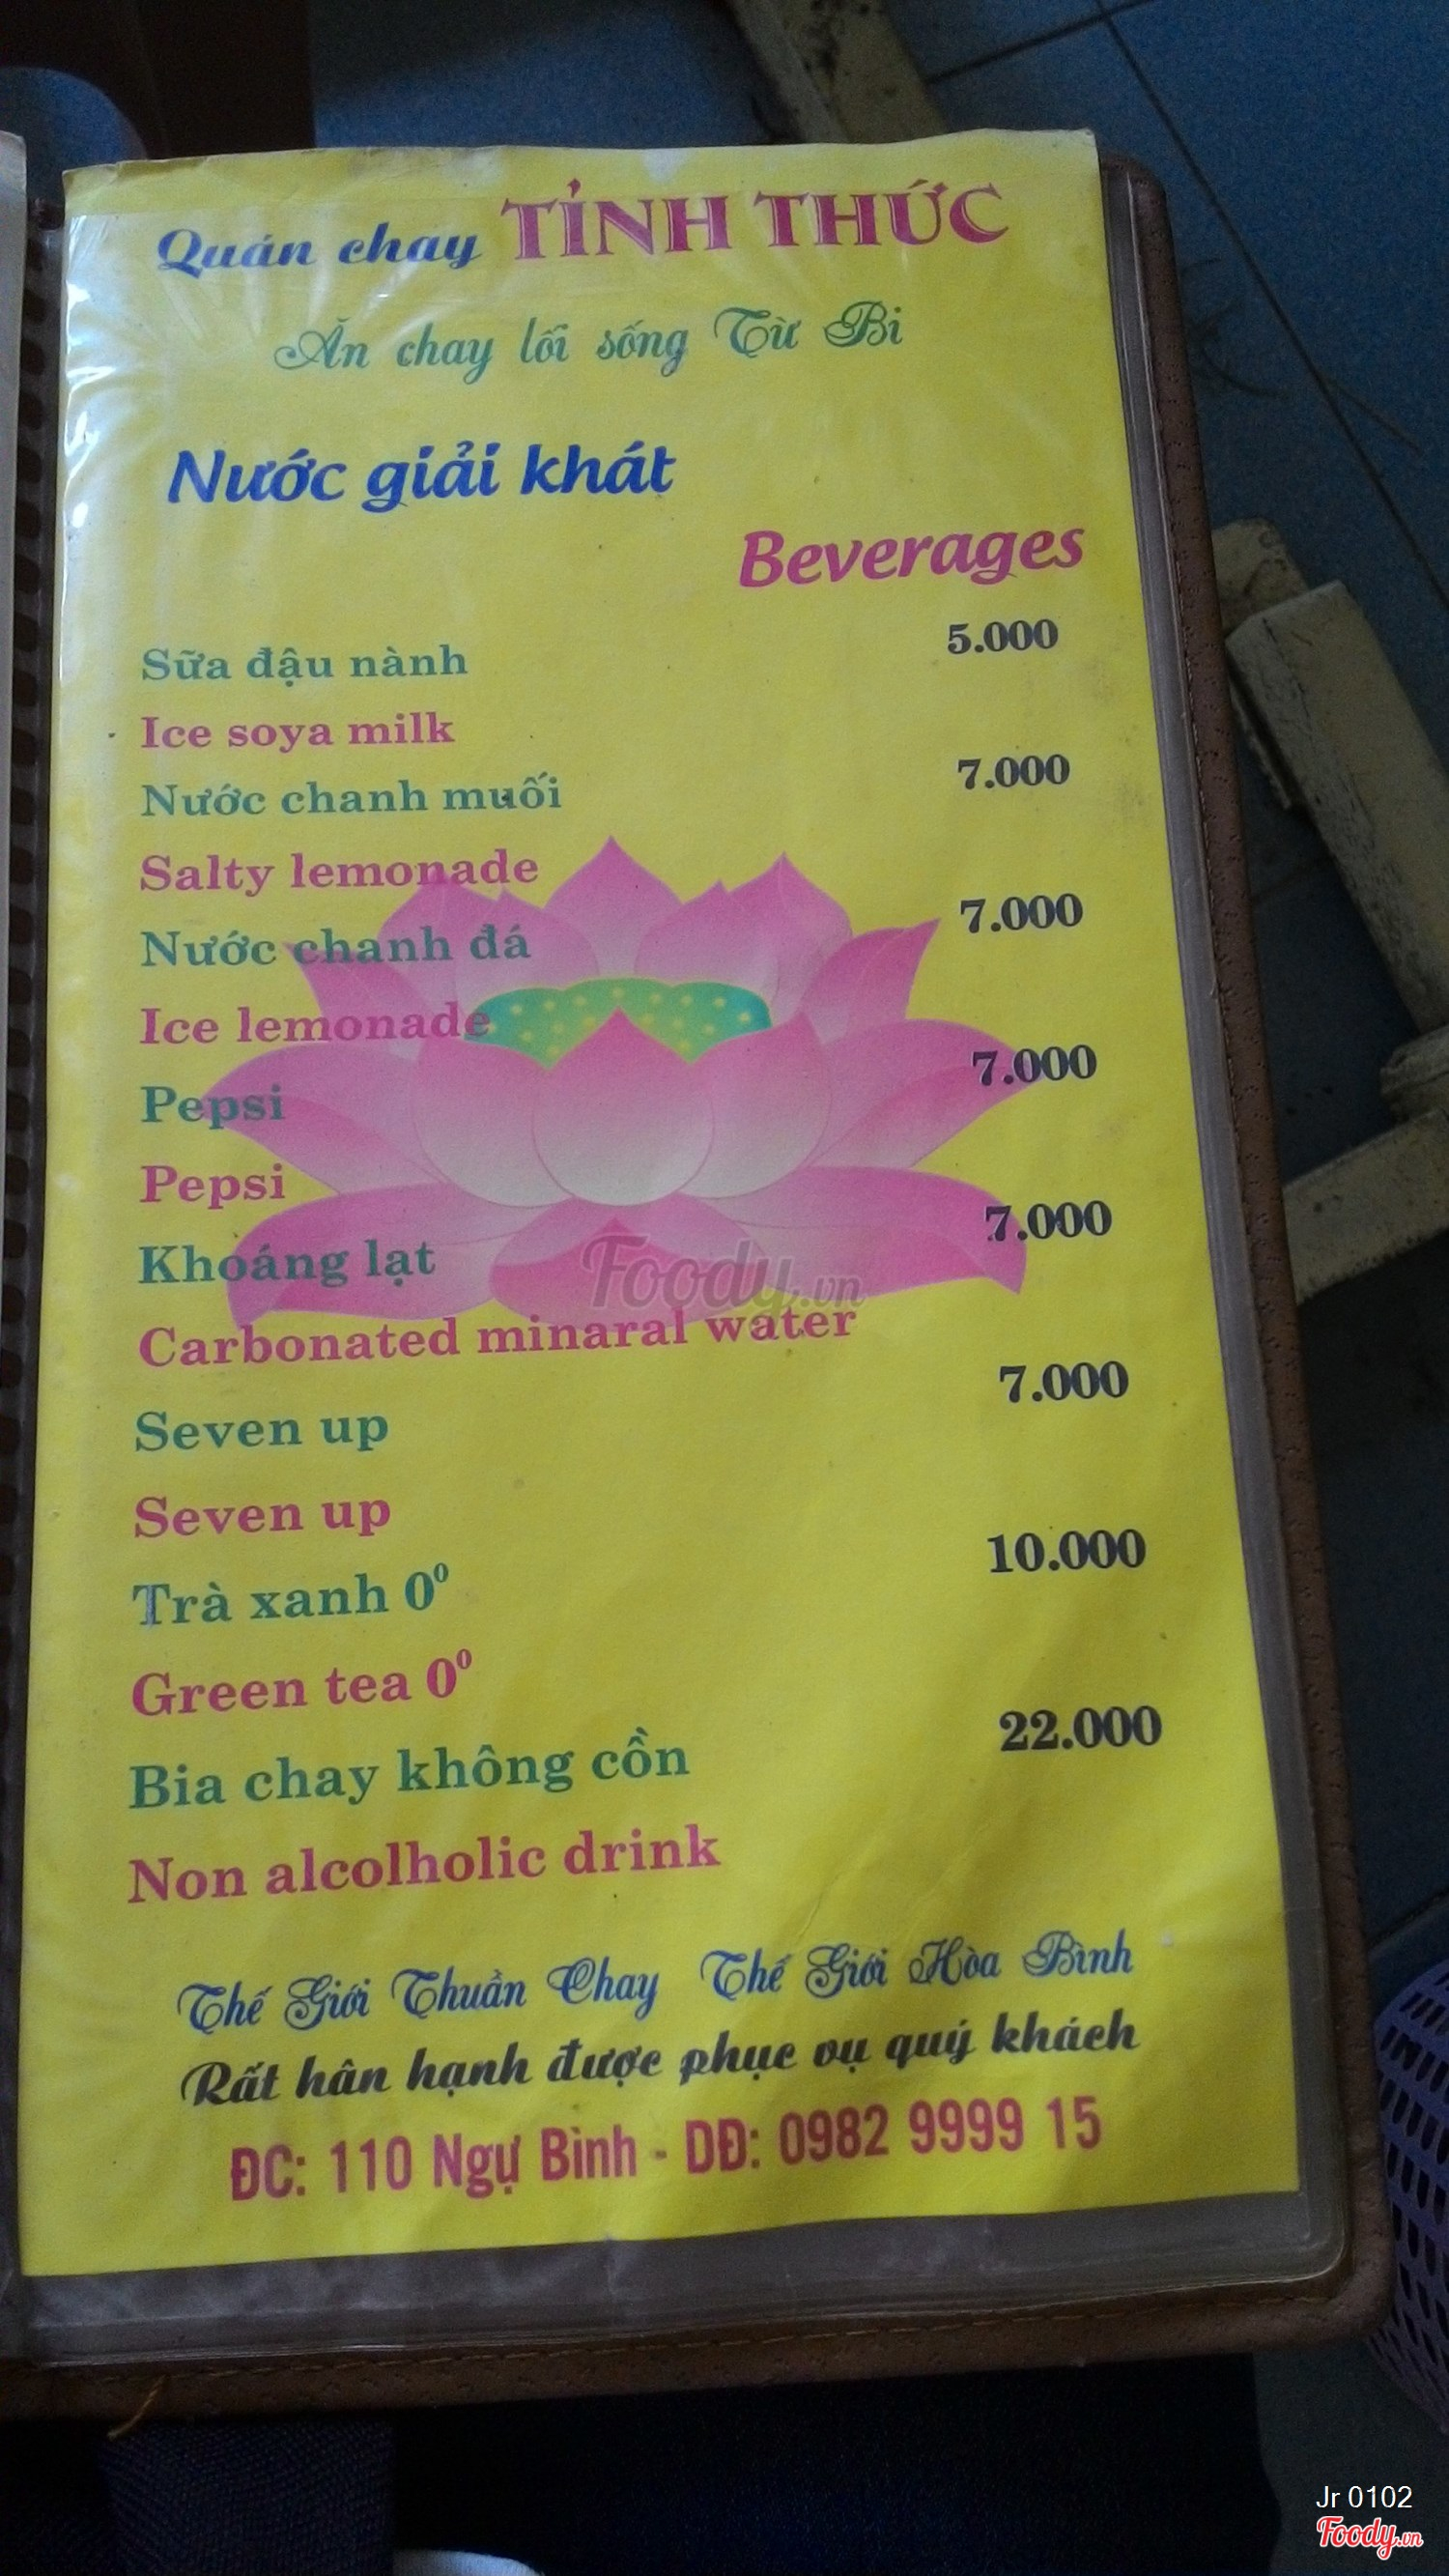 Quán chay TỈNH THỨC
Ăn chay lối sống Từ Bi
Nước giải khát
Beverages
Sữa đậu nành 5.000
Ice soya milk
Nước chanh muối 7.000
Salty lemonade
Nước chanh đá 7.000
Ice lemonade
Pepsi 7.000
Pepsi
Khoáng lạt 7.000
Carbonated minaral water
Foody.vn
Seven up 7.000
Seven up
Trà xanh 0⁰ 10.000
Green tea 0⁰
Bia chay không cồn 22.000
Non alcolholic drink
Thế Giới Thuần Chay Thế Giới Hòa Bình
Rất hân hạnh được phục vụ quý khách
ĐC: 110 Ngự Bình - DĐ: 0982 9999 15
Jr 0102
Foody.vn